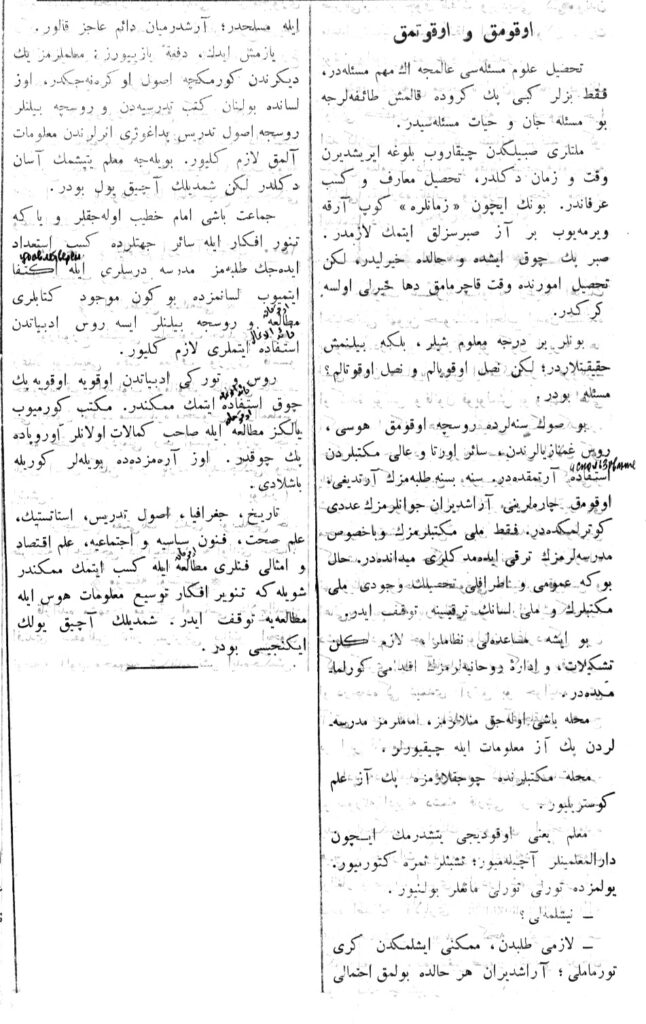 اوقومق و اوقوتمق
تحصیل علوم مسئله‌سی عالمجه اك مهم مسئله‌در،
فقط بزلر كبی پك كروده قالمش طائفه‌لرجه
بو مسئله جان و حیات مسئله‌سیدر.
ملتلری صبیلكدن چیقاروب بلوغه ایریشدیرن
وقت و زمان دكلدر، تحصیل معارف و كسب
عرفاندر. بونك ایچون «زمانلره» كوپ آرقه
ویرمه‌یوب بر آز صبرسزلق ایتمك لازمدر.
صبر پك چوق ایشده و حالده خیرلیدر، لكن
تحصیل امورنده وقت قاچرمامق دها خیرلی اولسه
كركدر.
بونلر بر درجه معلوم شیلر، بلكه بیلنمش
حقیقتلاردر؛ لكن نصل اوقویالم و نصل اوقوتالم؟
مسئله بودر.
بو صوك سنه‌لرده روسچه اوقومق هوسی،
روس غمنازیالرندن، سائر اورتا و عالی مكتبلردن
استفاده آرتمقده‌در. سنه بسنه طلبه‌مزك آرتدیغی،
اوقومق چاره‌لرینی آراشدیران جوانلرمزك عددی
كوترلمكده‌در. فقط ملی مكتبلرمزك وباخصوص
مدرسه‌لرمزك ترقی ایده‌مدكلری میدانده‌در. حال
بو كه عمومی و اطرافلی تحصیلك وجودی ملی
مكتبلرك و ملی لسانك ترقیسنه توقف ایدر.
بو ایشه مساعده‌لی نظاملر، لازم كلن
تشكیلات، و ادارهٔ روحانیه‌لرمزك اقدامی كورلمه
میده‌در.
محله باشی اوله‌جق منلالرمز، اماملرمز مدرسه
لردن پك آز معلومات ایله چیقیورلر.
محله مكتبلرنده چوجقلارمزه پك آز علم
كوستریلیور.
معلم یعنی اوقودیجی یتشدرمك ایچون
دارالمعلمینلر آچیله‌میور؛ تشبثلر ثمره كتورمیور.
یولمزده تورلی تورلی مانعلر بولنیور.
ــ نیشلمه‌لی؟
ــ لازمی طلبدن، ممكنی ایشلمكدن كری
تورماملی؛ آراشدیران هر حالده بولمق احتمالی
ایله مسلحدر؛ آرشدرمیان دائم عاجز قالور.
یازمش ایدك، دفعهٔ یازییورز: معلملرمز پك
دیكرندن كورمكچه اصول اوكره‌نه‌جكدر. اوز
لسانده بولینان كتب تدرسیه‌دن و روسچه بیلنلر
روسجه اصول تدریس پداغوژی اثرلرندن معلومات
آلمق لازم كلیور. بویله‌جه معلم یتیشمك آسان
دكلدر لكن شمدیلك آچیق یول بودر.
جماعت باشی امام خطیب اوله‌جقلر و یا كه
تنور افكار ایله سائر جهتلرده كسب استعداد
ایده‌جك طلبه‌مز مدرسه درسلری ایله اكتفا
ایتمیوب لسانمزده بو كون موجود كتابلری
مطالعه و روسچه بیلنلر ایسه روس ادبیاتدن
استفاده ایتملری لازم كلیور.
روس و توركی ادبیاتدن اوقویه اوقویه پك
چوق استفاده ایتمك ممكندر. مكتب كورمیوب
یالكز مطالعه ایله صاحب كمالات اولانلر آوروپاده
پك چوقدر. اوز آره‌مزده‌ده بویله‌لر كوریله
باشلادی.
تاریخ، جغرافیا، اصول تدریس، استاتستیك،
علم صحت، فنون سیاسیه و اجتماعیه، علم اقتصاد
و امثالی فنلری مطالعه ایله كسب ایتمك ممكندر
شویله كه تنویر افكار توسیع معلومات هوس ایله
مطالعه‌یه توقف ایدر. شمدیلك آچیق یولك
ایكنجیسی بودر.